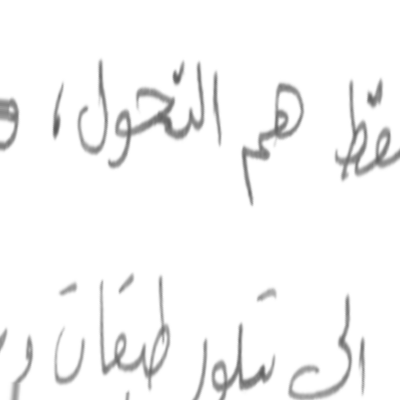 فقط هم التحول ،
الى تبلور طبقات